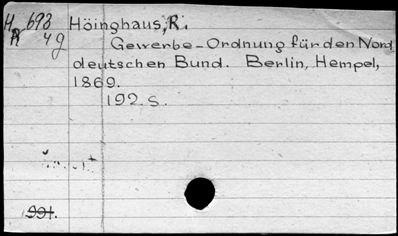 H 693 Höinghaus, R.
R 49 Gewerbe-Ordnung für den Nord
deutschen Bund. Berlin, Hempel,
1869.
192 S.
991.